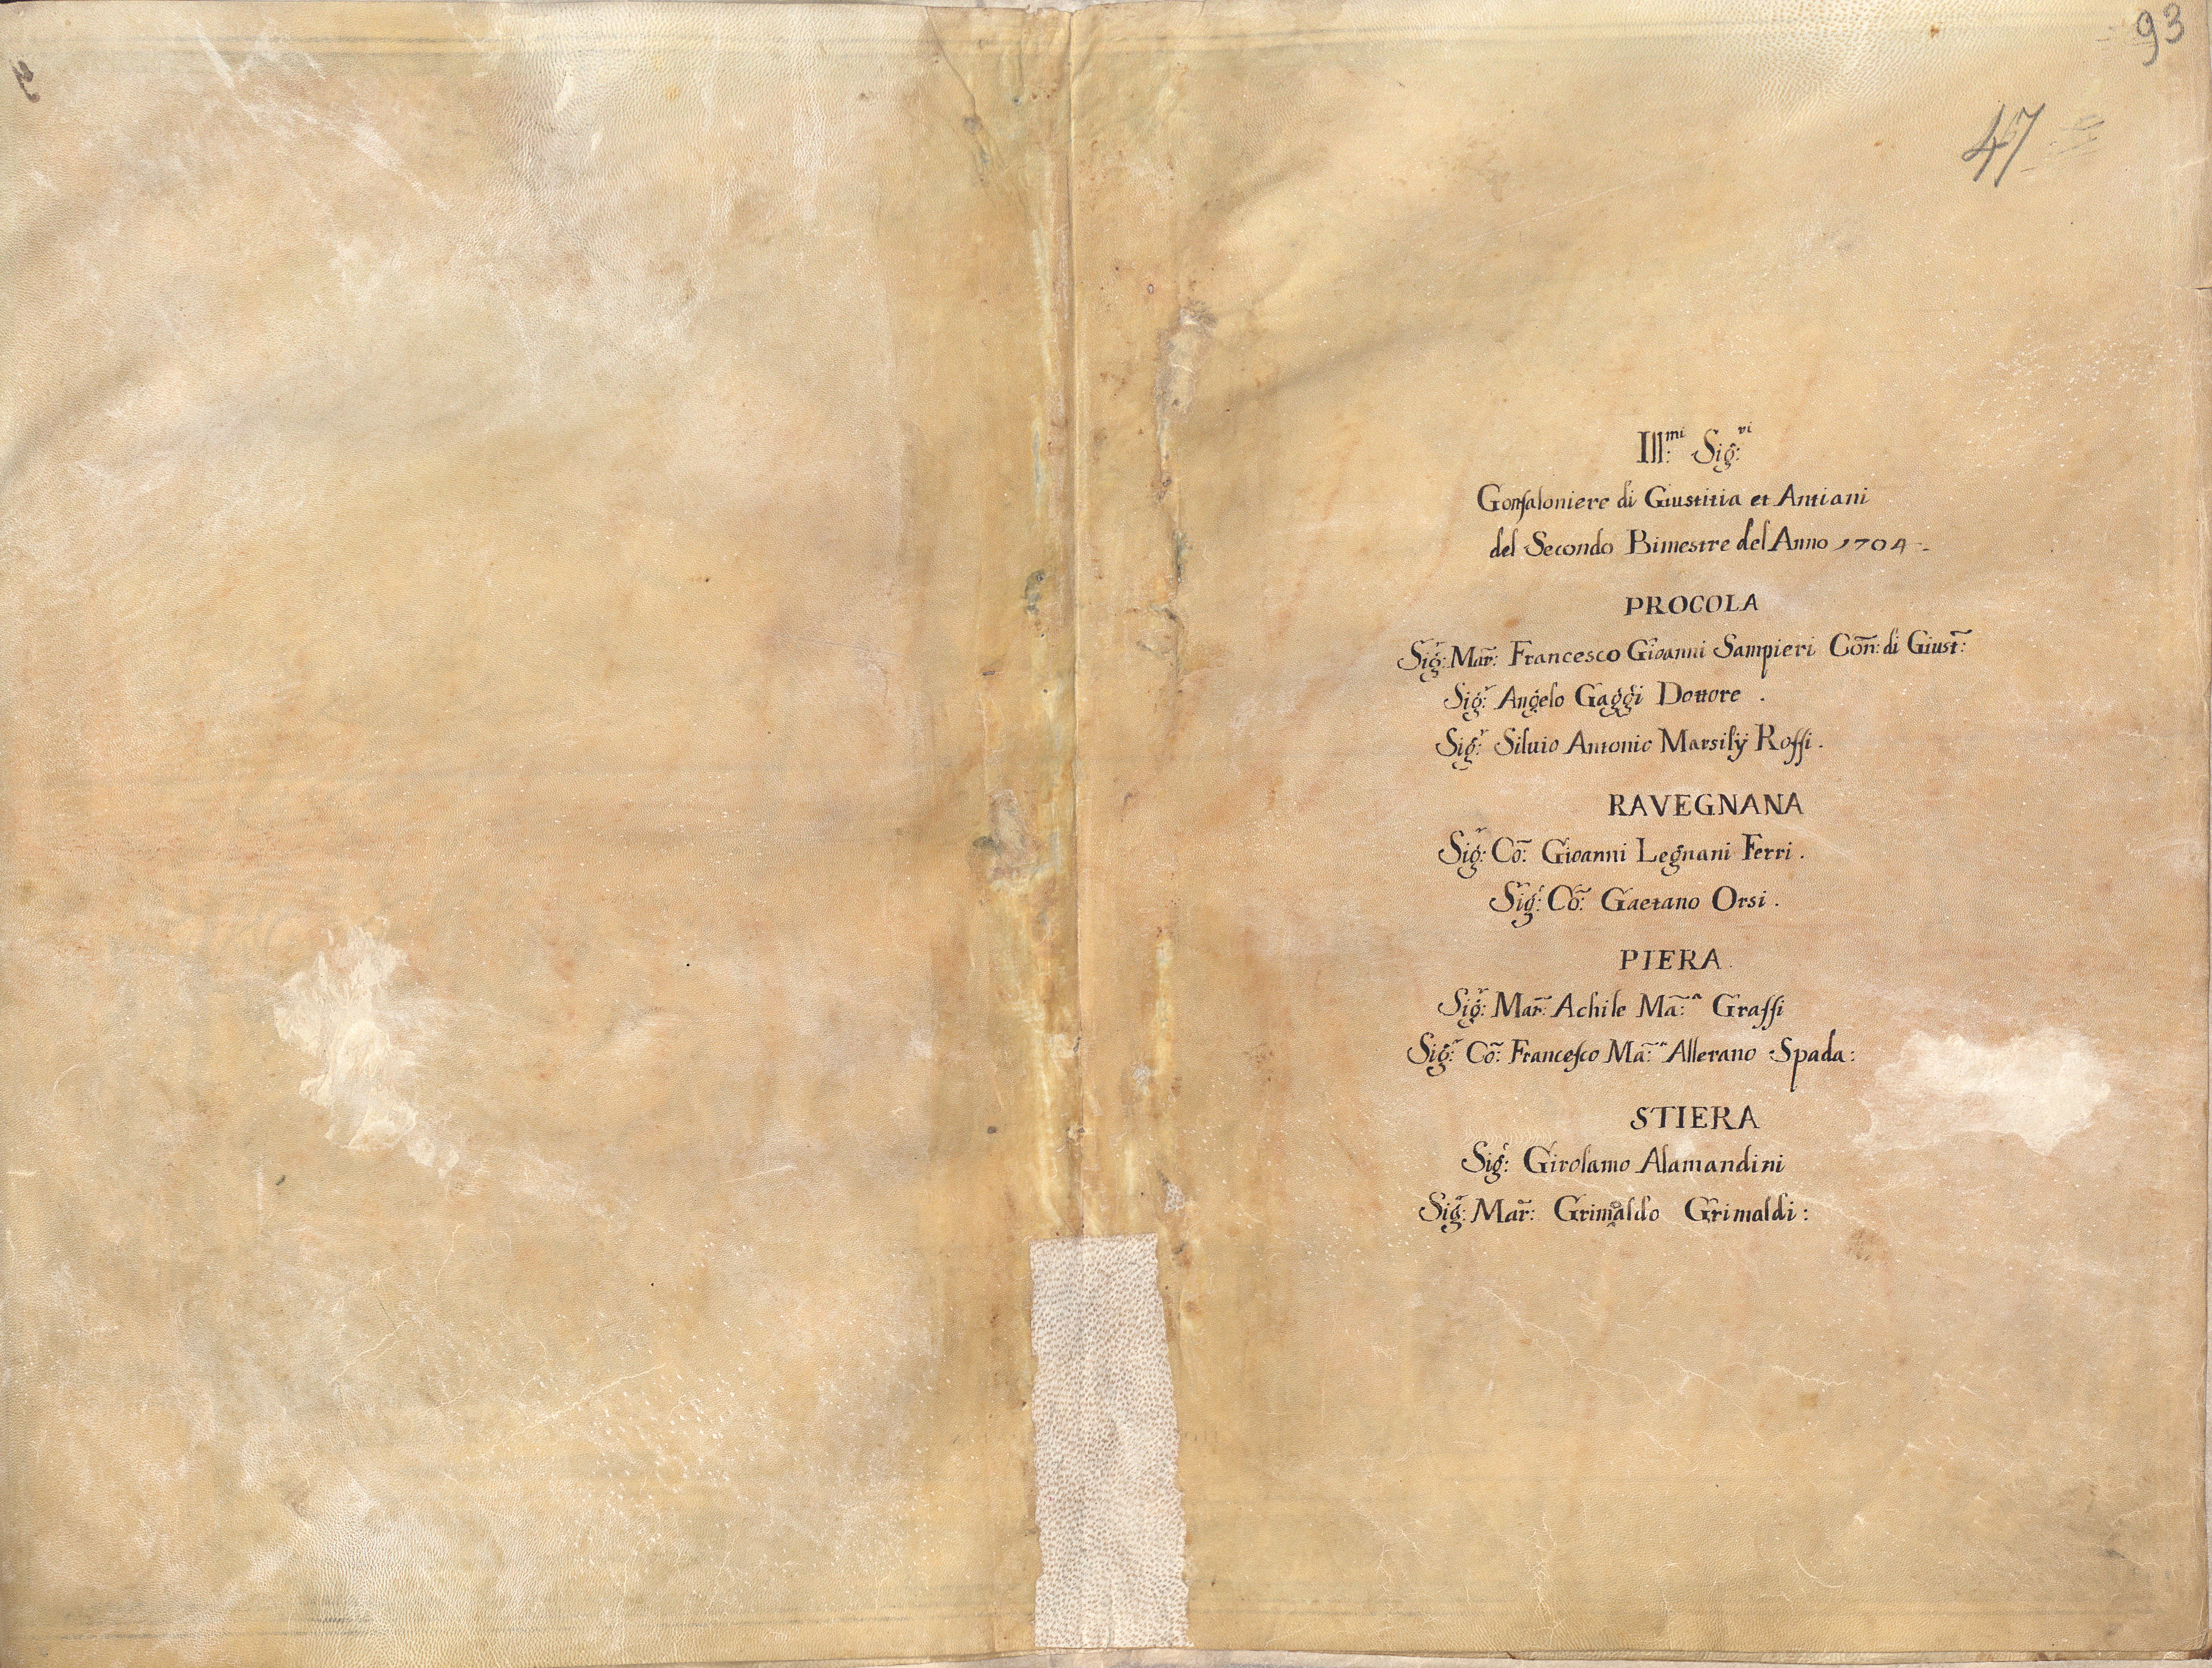 93
47
Ill:mi Sig:ri
Gonfaloniere di Giustitia et Antiani
del Secondo Bimestre del Anno 1704
PROCOLA
Sig:r Mar: Francesco Gioanni Sampieri Con: di Giust:
Sig:r Angelo Gaggi Dottore .
Sig:r Siluio Antonio Marsilÿ Roſſi .
RAVEGNANA
Sig:r Co: Gioanni Legnani Ferri .
Sig:r Co: Gaetano Orsi .
PIERA .
Sig:r Mar: Achile Ma:a Graſſi
Sig:r Co: Franceſco Ma:a Allerano Spada :
STIERA
Sig:r Girolamo Alamandini
Sig:r Mar: Grimaldo Grimaldi :